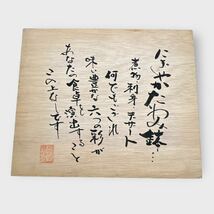 にぎやかたわみ鉢…
煮物刺身デザート
何でもござれ
味い豊かな六つの彩が
あなたの食卓演出すること
この上なしです